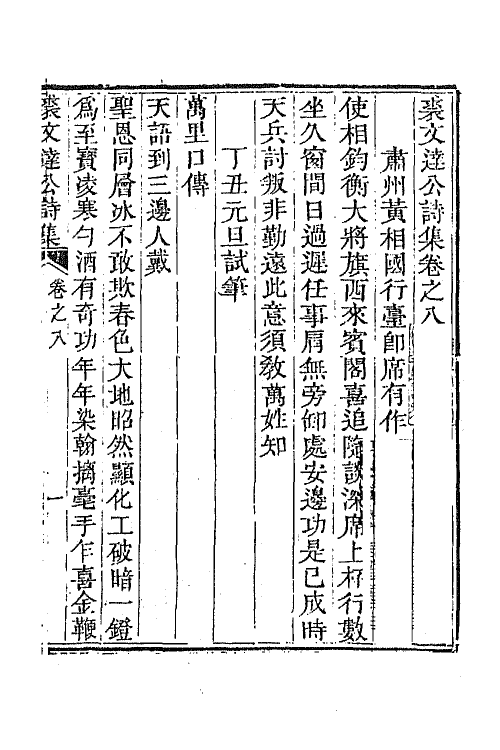 裘文達公詩集卷之八
肅州黃相國行臺卽席有作
使相鈞衡大將旗西來賓閣喜追隨談深席上杯行數
坐久窗間日過遲任事肩無旁卸處安邊功是已成時
天兵討叛非勤遠此意須教萬姓知
丁丑元旦試筆
萬里口傳
天語到三邊人戴
聖恩同層冰不敢欺春色大地昭然顯化工破暗一鐙
爲至寶凌寒勺酒有奇功年年染翰摛毫手乍喜金鞭
裘文達公詩集
卷之八
一